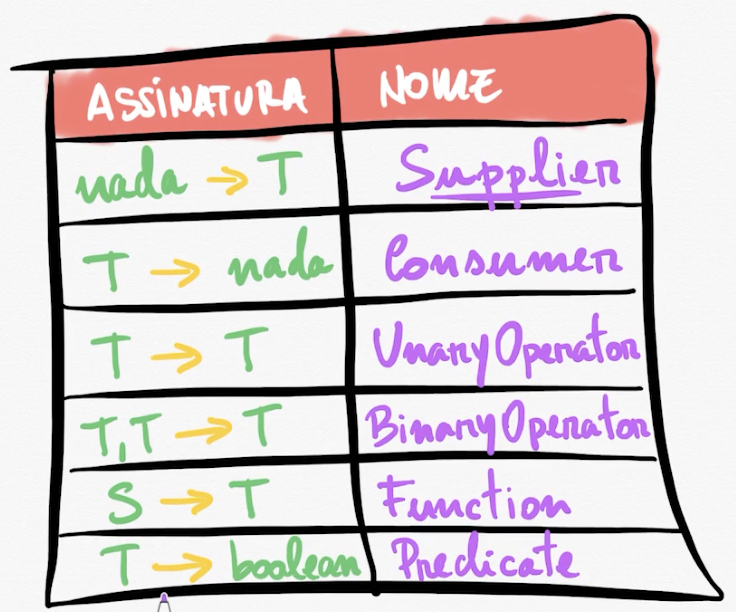 ASSINATURA NOME
nada → T Supplier
T → nada Consumer
T → T UnaryOperator
T,T → T BinaryOperator
S → T Function
T → boolean Predicate